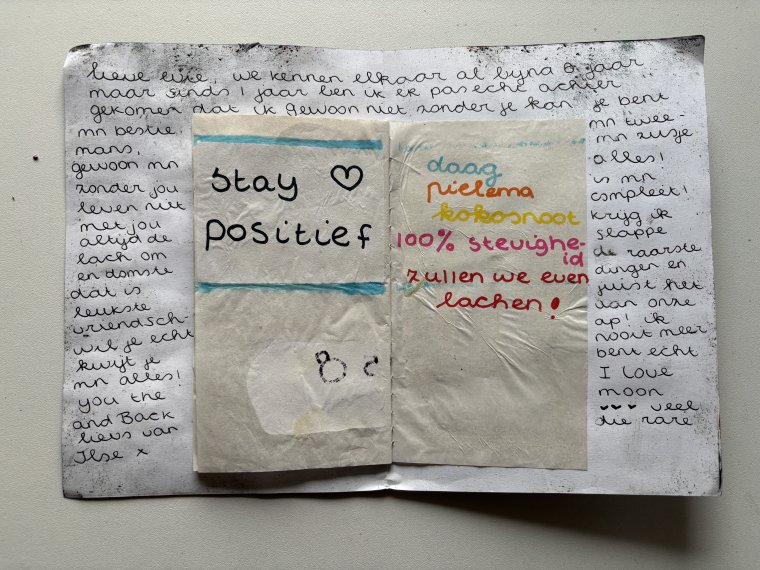 lieve evie, we kennen elkaar al bijna 6 jaar
maar sinds 1 jaar ben ik er pas echt achter
gekomen dat ik gewoon niet zonder je kan. je bent
mn bestie. mn twee-
mans, mn zusje
gewoon mn alles!
zonder jou is mn
leven niet compleet!
met jou krijg ik
altijd de slappe
lach om de raarste
en domste dingen en
dat is juist het
leukste van onze
vriendsch ap! ik
wil je echt nooit meer
kwijt je bent echt
mn alles! I love
you the moon
and Back ♥♥♥ veel
liefs van die rare
Ilse x
Stay ♡
positief
daag
pielema
kokosnoot
100% stevighe-
id
zullen we even
lachen!